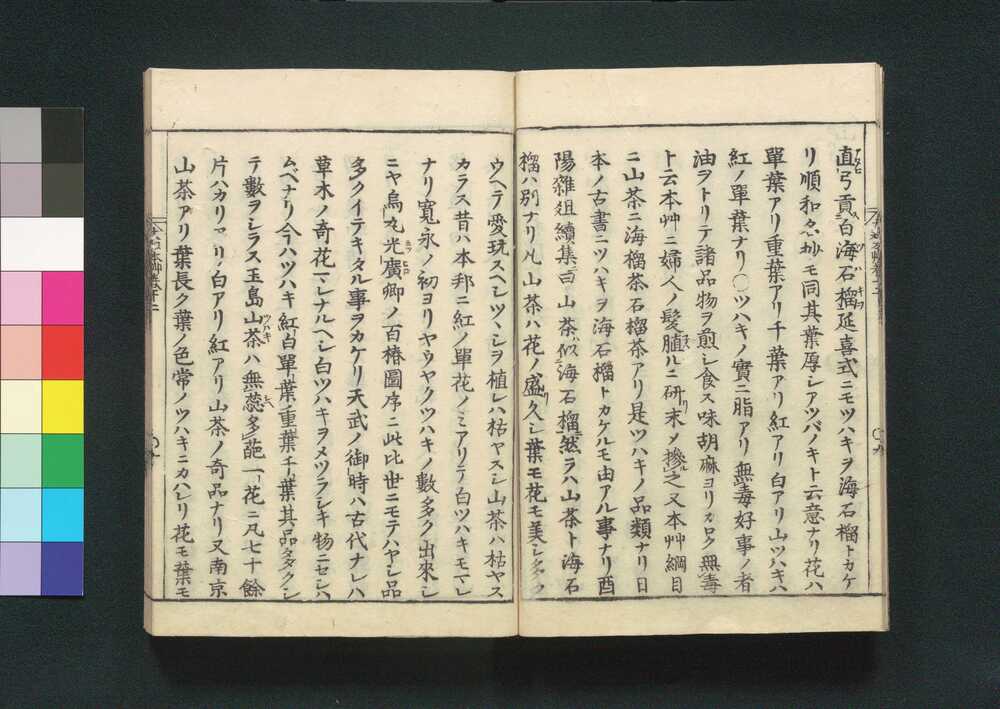 直弓貢ス白海石榴延喜式ニモツハキヲ海石榴トカケ
リ順和名抄モ同其葉厚シアツバノキト云意ナリ花ハ
單葉アリ重葉アリ千葉アリ紅アリ白アリ山ツハキハ
紅ノ單葉ナリ〇ツハキノ實ニ脂アリ無毒好事ノ者
油ヲトリテ諸品物ヲ煎シ食ス味胡麻ヨリカロク無毒
ト云本艸ニ婦人ノ髮䐈ルニ研末〆摻之又本艸綱目
ニ山茶ニ海榴茶石榴茶アリ是ツハキノ品類ナリ日
本ノ古書ニツハキヲ海石榴トカケルモ由アル事ナリ酉
陽雜俎續集ニ曰山茶似海石榴然ラハ山茶ト海石
榴ハ別ナリ凡山茶ハ花ノ盛久シ葉モ花モ美シ多ク
ウヘテ愛玩スヘシツヽシヲ植レハ枯ヤスシ山茶ハ枯ヤス
カラス昔ハ本邦ニ紅ノ單花ノミアリテ白ツハキモマレ
ナリ寛永ノ初ヨリヤウヤクツハキノ數多ク出來シ
ニヤ烏丸光廣卿ノ百椿圖序ニ此比世ニモテハヤシ品
多クイテキタル事ヲカケリ天武ノ御時ハ古代ナレハ
草木ノ奇花マレナルヘシ白ツハキヲメツラシキ物ニセシハ
ムベナリ今ハツハキ紅白單葉重葉千葉其品タクシ
テ數ヲシラス玉島山茶ハ無蕊多葩一花ニ凡七十餘
片ハカリアリ白アリ紅アリ山茶ノ奇品ナリ又南京
山茶アリ葉長ク葉ノ色常ノツハキニカハレリ花モ葉モ